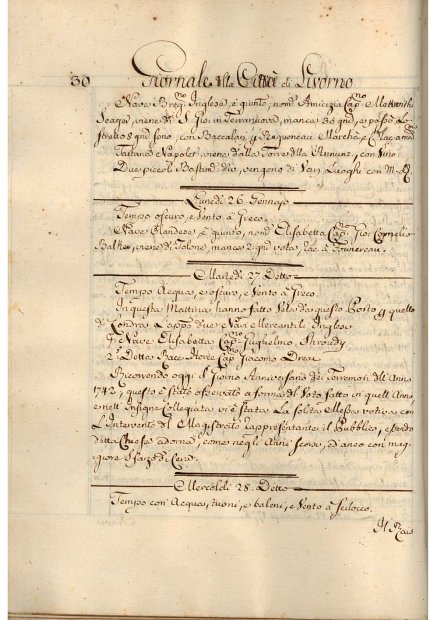 30 Giornale della Città di Livorno
Nave Breg.ⁿᵒ Inglese, è giunto, nom.ᵗᵒ Amicizia Cap.ⁿᵒ
Seager, viene di S. Gio: in Terranuova, manca 38 gni, e passò lo
stretto 8 gni sono, con Baccalari, p. Requeneau
Tartana Napolet. viene dalla Torre della Annunz.ᵃ, con Vino
Due piccoli Bastim.ᵗⁱ vengono di Varj Luoghi con
Lunedì 26. Gennajo
Tempo oscuro, e Vento à Greco.
Nave Olandese, è giunta, nom.ᵗᵃ Elisabetta Cap.ⁿᵒ Gio: Cornelio
Bakker, viene di Tolone, manca 2. gni vota, rac. à
Martedì 27. Detto
Tempo Acqua, e oscuro, e Vento à Greco.
In questa Mattina hanno fatto Vela da questo Porto p. quello
di Londra l'appo dice Navi Mercantili Inglese
P.ᵃ Nave Elisabetta Cap.ⁿᵒ Guglielmo
2.ᵃ Detta Cap.ⁿᵒ Giacomo
Ricorrendo oggi il Giorno Anniversario dei Terremoti dell'Anno
1742, questo è stato osservato a forma del Voto fatto in quell'Anno,
e nell'Insigne Collegiata vi è stata La solita Messa votiva con
L'Intervento del Magistrato rappresentante il Pubblico, essendo
detta Chiesa adorna, come negli Anni scorsi, ed anco con mag-
giore sfarzo di Cera.
Mercoledì 28. Detto
Tempo con Acqua, tuoni, e baleni, e Vento à Scilocco.
Il Rais